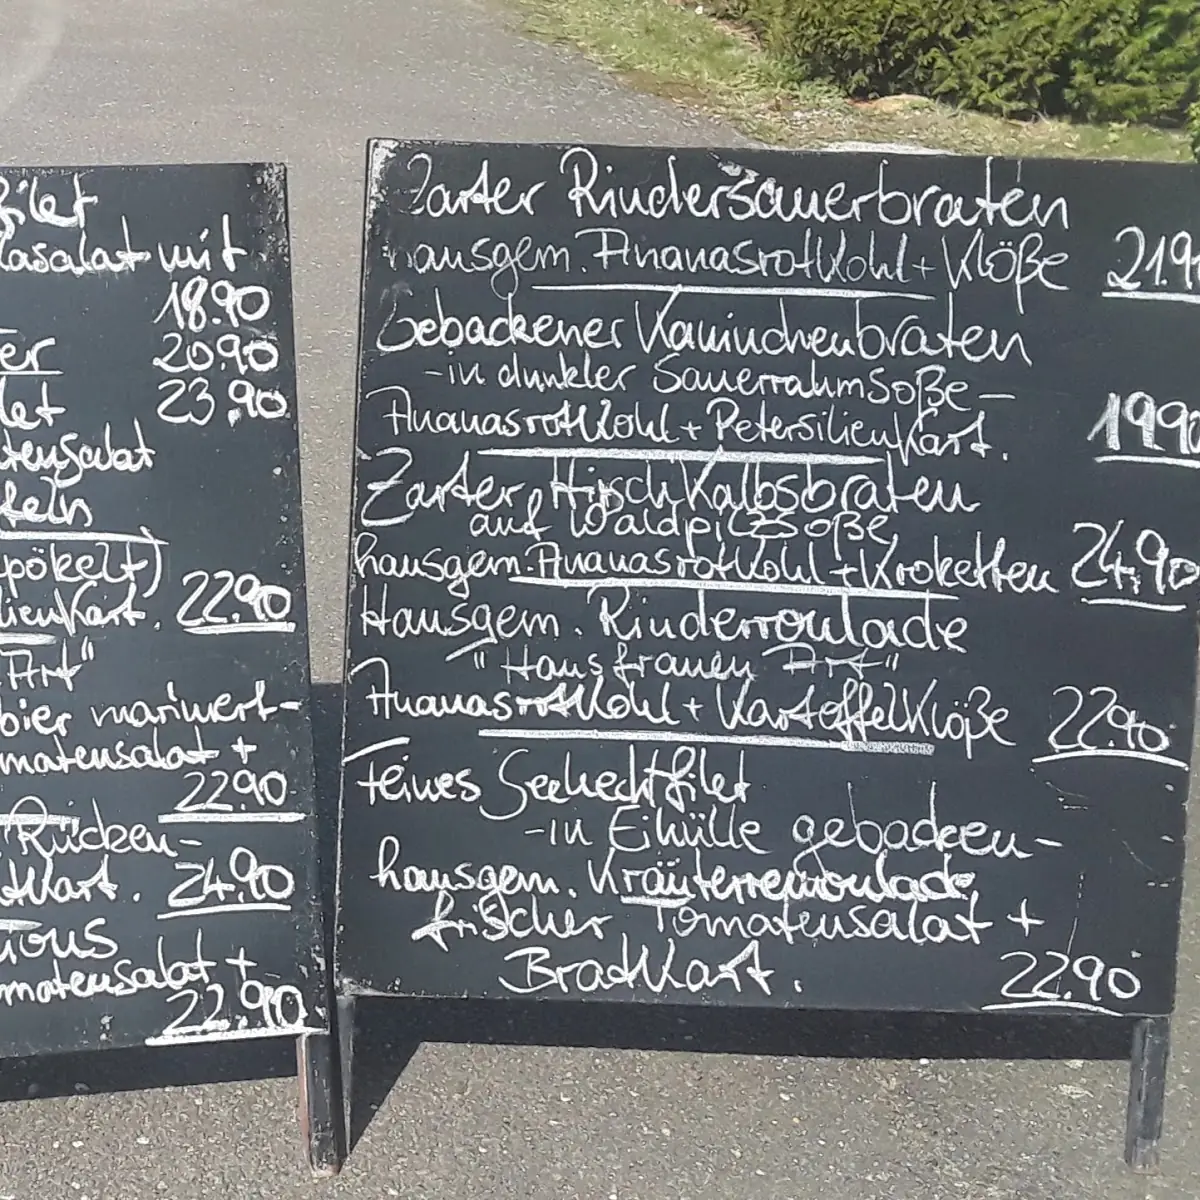 filet
lasalat mit
18.90
er 20.90
let 23.90
tensalat
teln
pökelt)
lienkart. 22.90
Art"
bier mariniert-
matensalat +
22.90
Rücken-
tkart. 24.90
ious
matensalat +
22.90
Zarter Rindersauerbraten
hausgem. Ananasrotkohl + Klöße 21.9
Gebackener Kaninchenbraten
-in dunkler Sauerrahmsoße-
Ananasrotkohl + Petersilienkart. 19.90
Zarter Hirschkalbsbraten
auf Waldpilzsoße
hausgem. Ananasrotkohl + Kroketten 24,90
Hausgem. Rinderroulade
"Hausfrauen Art"
Ananasrotkohl + Kartoffelklöße 22.90
Feines Seehechtfilet
-in Eihülle gebacken-
hausgem. Kräuterremoulade
frischer Tomatensalat +
Bratkart. 22.90